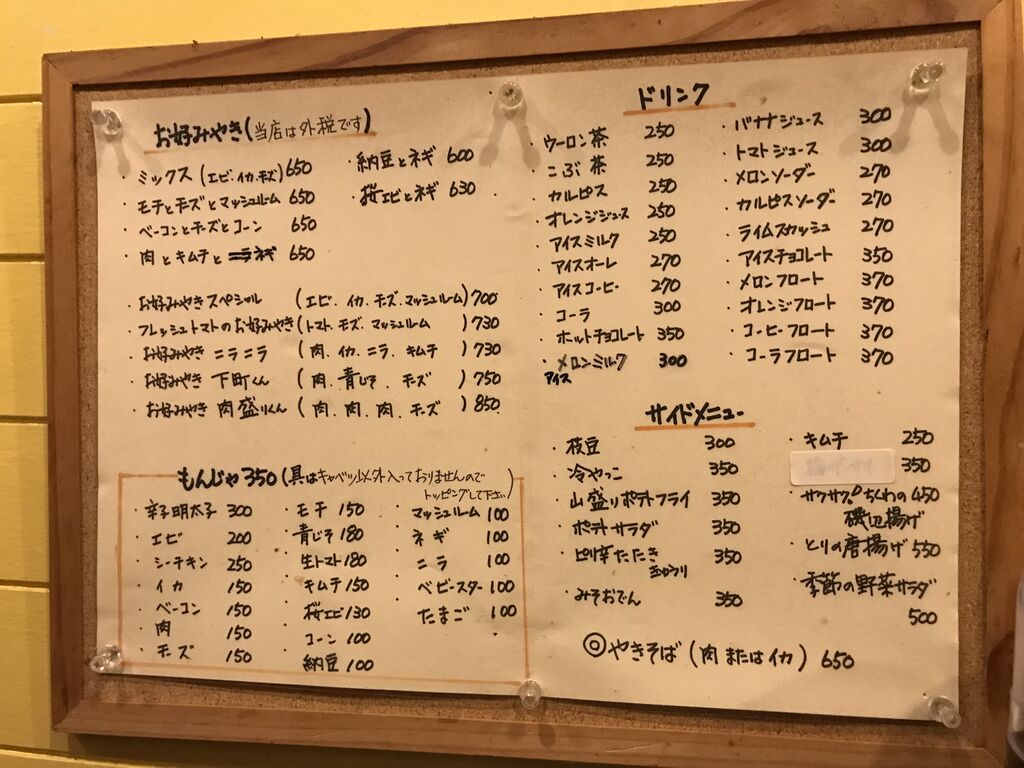 お好みやき(当店は外税です)
・ミックス(エビ、イカ、チーズ) 650
・モチとチーズとマッシュルーム 650
・ベーコンとチーズとコーン 650
・肉とキムチとネギ 650
・納豆とネギ 600
・桜エビとネギ 630
・お好みやきスペシャル (エビ、イカ、チーズ、マッシュルーム) 700
・フレッシュトマトのお好みやき (トマト、チーズ、マッシュルーム) 730
・お好みやき ニラニラ (肉、イカ、ニラ、キムチ) 730
・お好みやき 下町くん (肉、青じそ、チーズ) 750
・お好みやき 肉盛りくん (肉、肉、肉、チーズ) 850
もんじゃ350(具はキャベツ以外入っておりませんので
トッピングして下さい)
・辛子明太子 300
・エビ 200
・シーチキン 250
・イカ 150
・ベーコン 150
・肉 150
・チーズ 150
・モチ 150
・青じそ 180
・生トマト 180
・キムチ 150
・桜エビ 130
・コーン 100
・納豆 100
・マッシュルーム 100
・ネギ 100
・ニラ 100
・ベビースター 100
・たまご 100
ドリンク
・ウーロン茶 250
・こぶ茶 250
・カルピス 250
・オレンジジュース 250
・アイスミルク 250
・アイスオーレ 270
・アイスコーヒー 270
・コーラ 300
・ホットチョコレート 350
・メロンミルク 300
アイス
・バナナジュース 300
・トマトジュース 300
・メロンソーダー 270
・カルピスソーダー 270
・ライムスカッシュ 270
・アイスチョコレート 350
・メロンフロート 370
・オレンジフロート 370
・コーヒーフロート 370
・コーラフロート 370
サイドメニュー
・枝豆 300
・冷やっこ 350
・山盛りポテトフライ 350
・ポテトサラダ 350
・ピリ辛たたき 350
きゅうり
・みそおでん 350
・キムチ 250
350
・サクサクちくわの 450
磯辺揚げ
・とりの唐揚げ 550
・季節の野菜サラダ
500
◎やきそば(肉またはイカ) 650